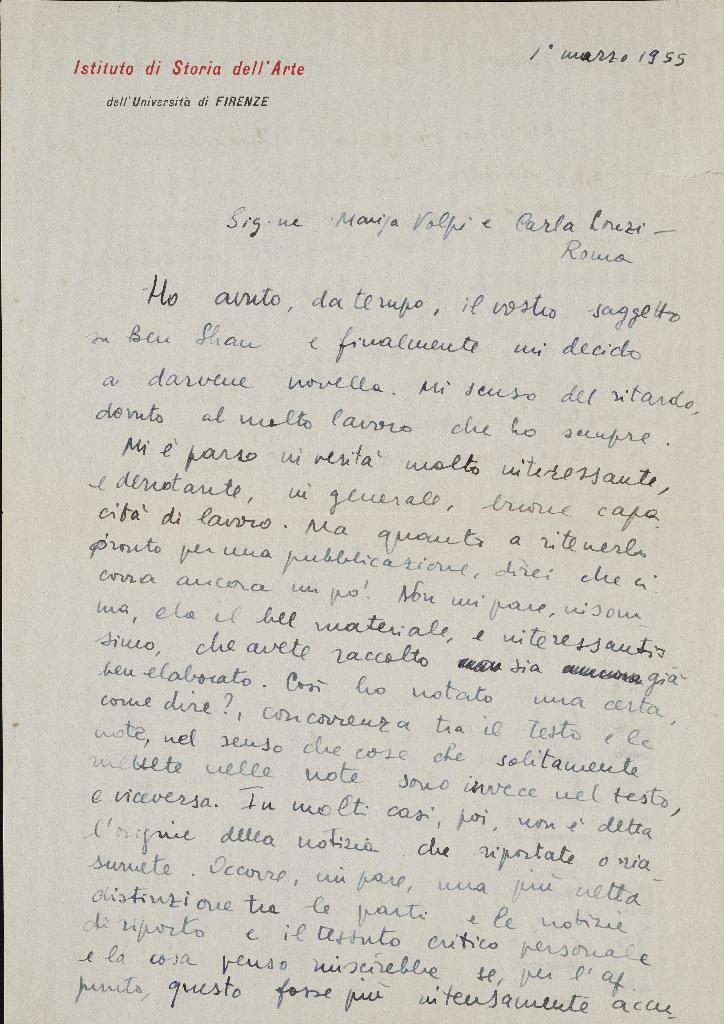 Istituto di Storia dell'Arte
dell'Università di FIRENZE
1° marzo 1955
Sig.ne Marisa Volpi e Carla Lonzi –
Roma
Ho avuto, da tempo, il vostro saggetto
su Ben Shan e finalmente mi decido
a darvene novella. Mi scuso del ritardo,
dovuto al molto lavoro che ho sempre.
Mi è parso in verità molto interessante,
e denotante, in generale, buone capa
cità di lavoro. Ma quanto a ritenerlo
pronto per una pubblicazione, direi che ci
corra ancora un po'. Non mi pare, insom
ma, che il bel materiale, e interessantis
simo, che avete raccolto sia già
ben elaborato. Così ho notato una certa,
come dire?, concorrenza tra il testo e le
note, nel senso che cose che solitamente
mettete nelle note sono invece nel testo,
e viceversa. In molti casi, poi, non è detta
l'origine della notizia che riportate o rias
sumete. Occorre, mi pare, una più netta
distinzione tra le parti e le notizie
di riporto e il tessuto critico personale
e la cosa penso riuscirebbe se, per l'ap
punto, questo fosse più intensamente accu